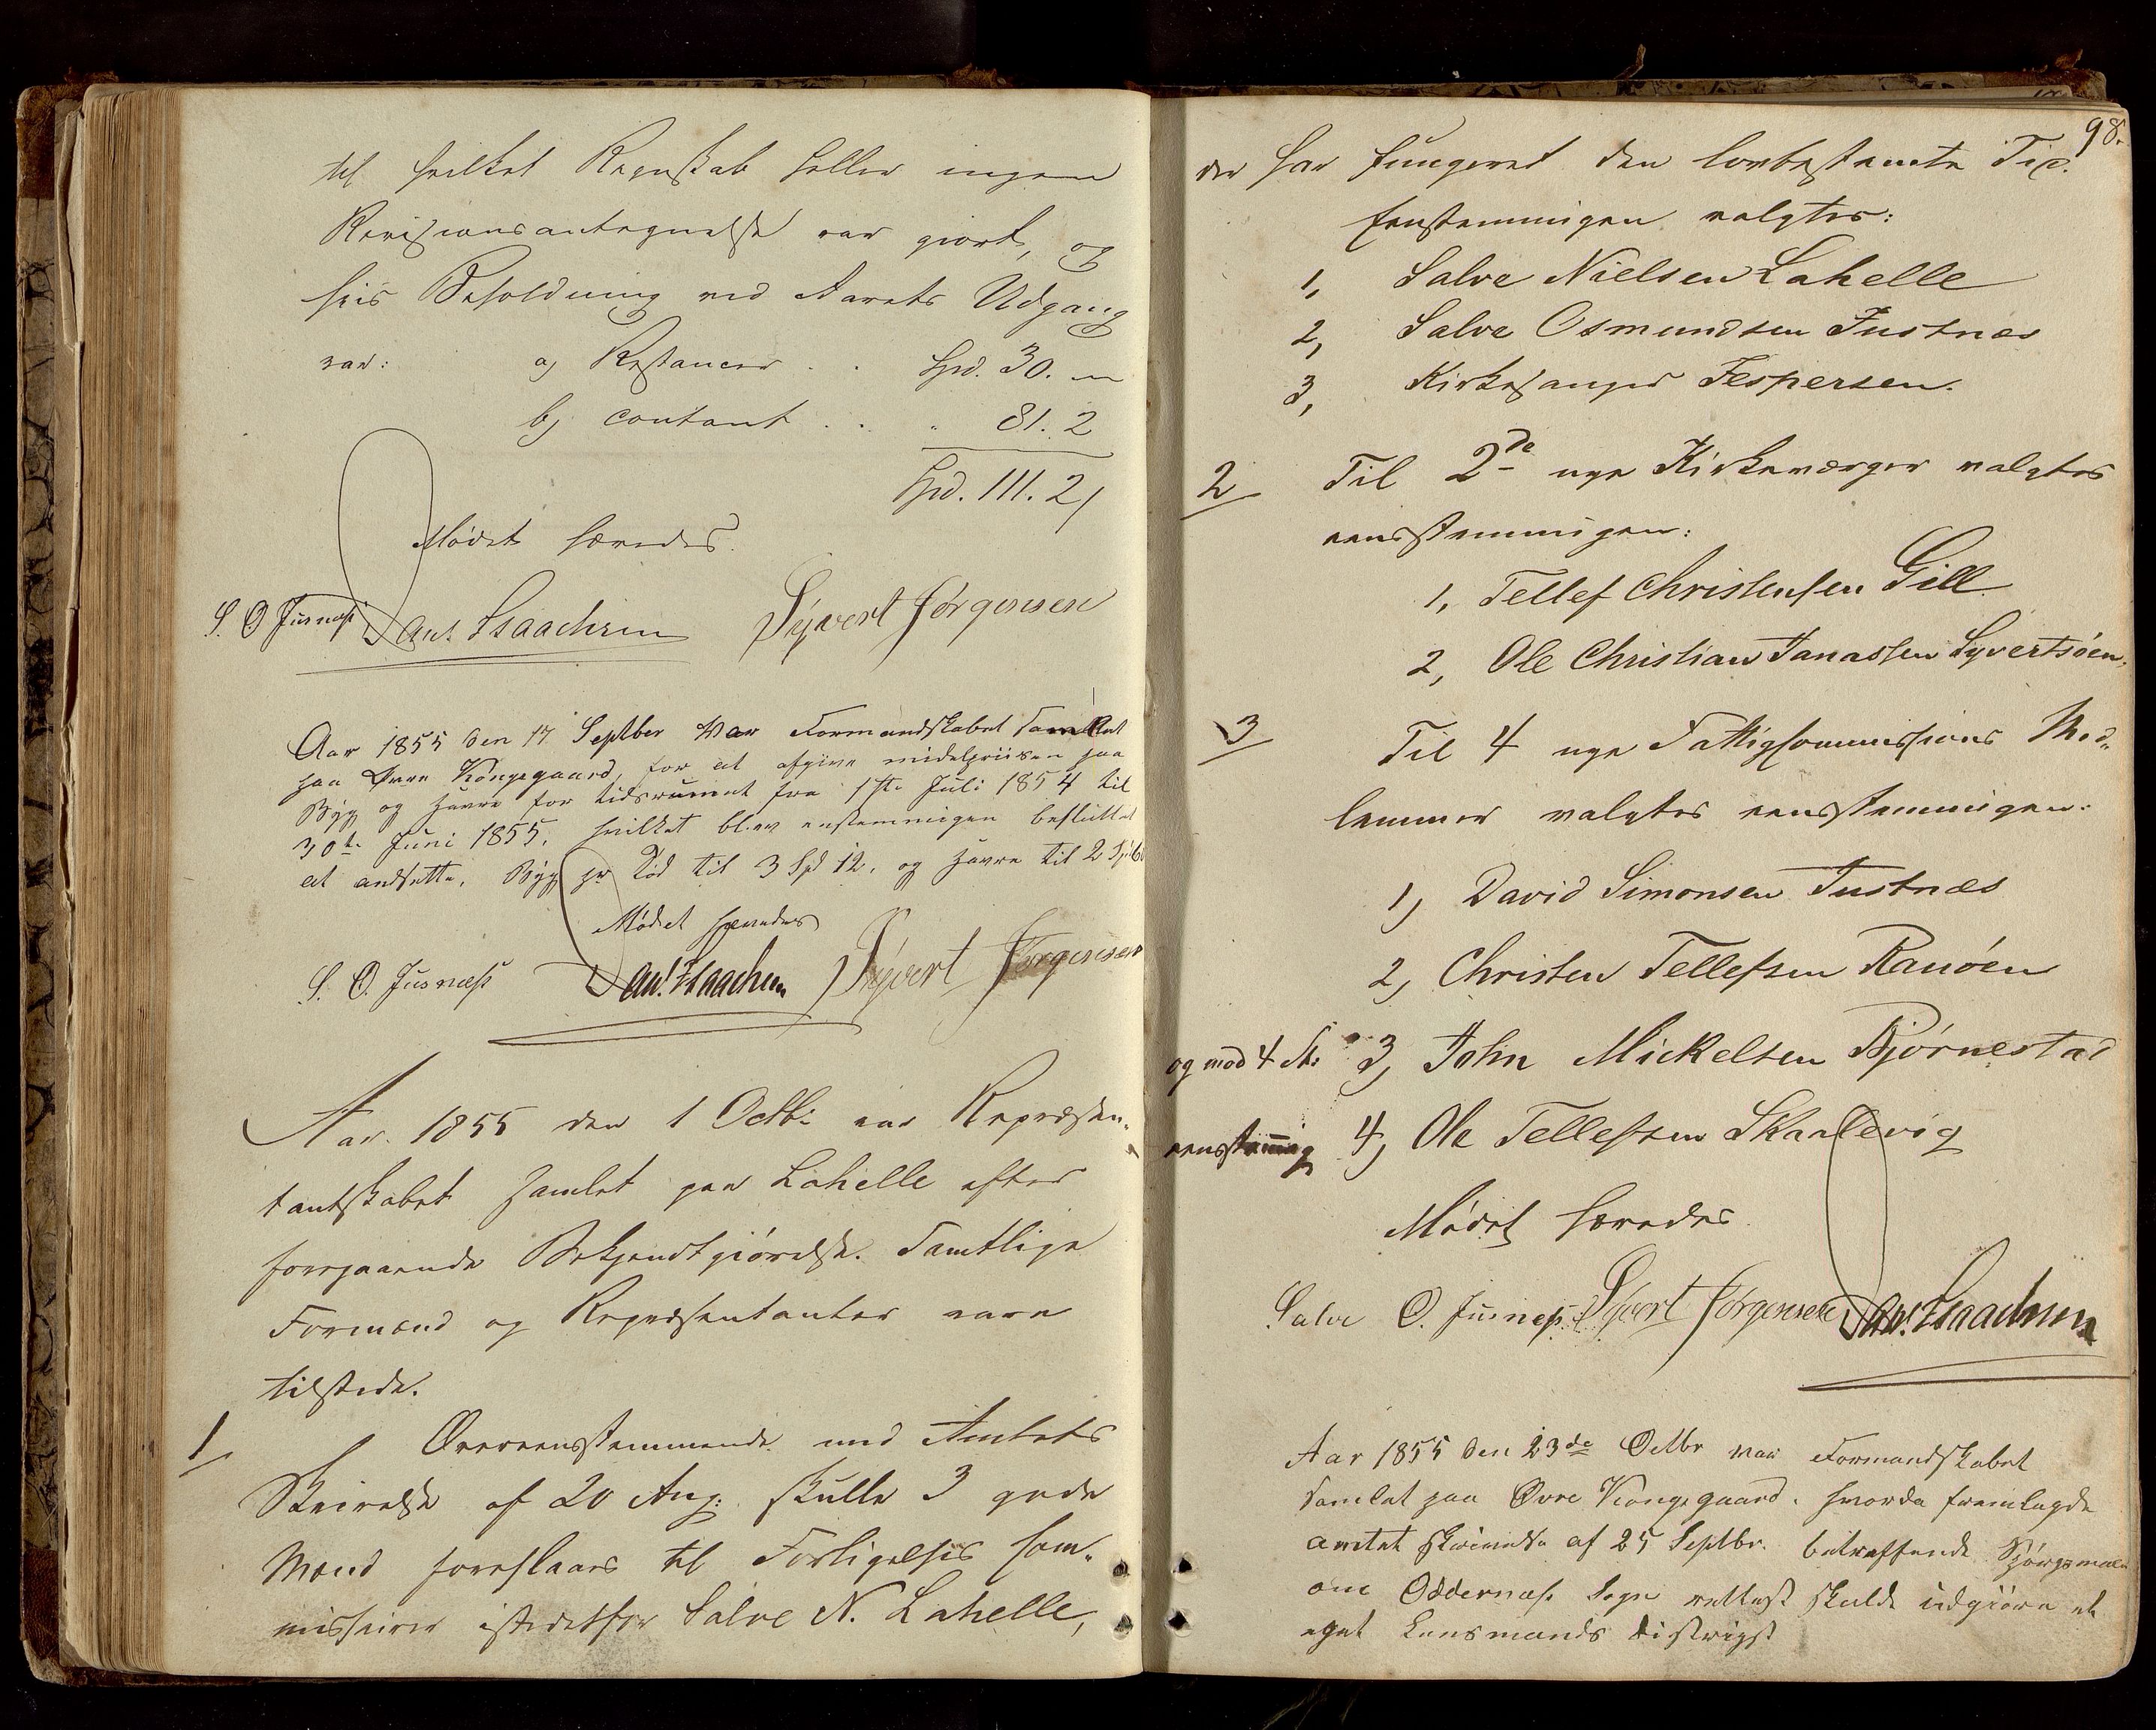 til hvilket Regnskab heller ingen
Revisionsantegnelse var giort, og
hvis Beholdning ved Aarets Udgang
var: a) Restancer . . Spd. 30. "
b) contant . . " 81. 2
Spd. 111. 2,
Mødet hævedes.
S. O. Jusnæss Dan. Isaachsen Syvert Jørgensen
Aar 1855 den 17 Septber var Formandskabet samlet
paa Øvre Kongsgaard, for at afgive midelpriisen paa
Byg og Havre for tidsrummet fra 1ste Juli 1854 til
30te Juni 1855, hvilket blev enstemmigen besluttet
at andsette, Byg pr Tød til 3 Spd 12, og Havre til 2 Spd
Mødet hævedes
S. O. Jusnæss Dan. Isaachsen Syvert Jørgensen
Aar 1855 den 1 Octbr var Repræsen-
tantskabet samlet paa Lahelle efter
foregaaende Bekjendtgiørelse. Samtlige
Formænd og Repræsentanter vare
tilstede.
1, Overeensstemmende med Amtets
Skrivelse af 20 Aug: skulle 3 gode
Mænd foreslaaes til Forligelses Com-
missairer istedetfor Salve N. Lahelle,
98.
der har fungeret den lovbestemte Tid.
Eenstemmigen valgtes:
1, Salve Nielsen Lahelle
2, Salve Osmundsen Justnæs
3, Kirkesanger Jespersen.
2 Til 2de nye Kirkeværger valgtes
eensstemmigen:
1, Tellef Christensen Gill
2, Ole Christian Janassen Syvertsöen.
3 Til 4 nye Fattigcommissions Med-
lemmer valgtes eensstemmigen:
1) David Simonsen Justnæs
2) Christen Tellefsen Ranöen
og mod 4 St: 3) John Mickelsen Bjørnestad
eensstemmig 4) Ole Tellefsen Skaalevig
Mødet hævedes
Salve O. Jusnæss Syvert Jørgensen Dan. Isaachsen
Aar 1855 den 23de Octbr var Formandskabet
samlet paa Øvre Kongsgaard. hvorda fremlagde
amtet skrivelse af 25 Septbr. betreffende Spørgsmaal
om Oddernæs Sogn rettest skulde udgiøre et
eget Lensmands distrigt